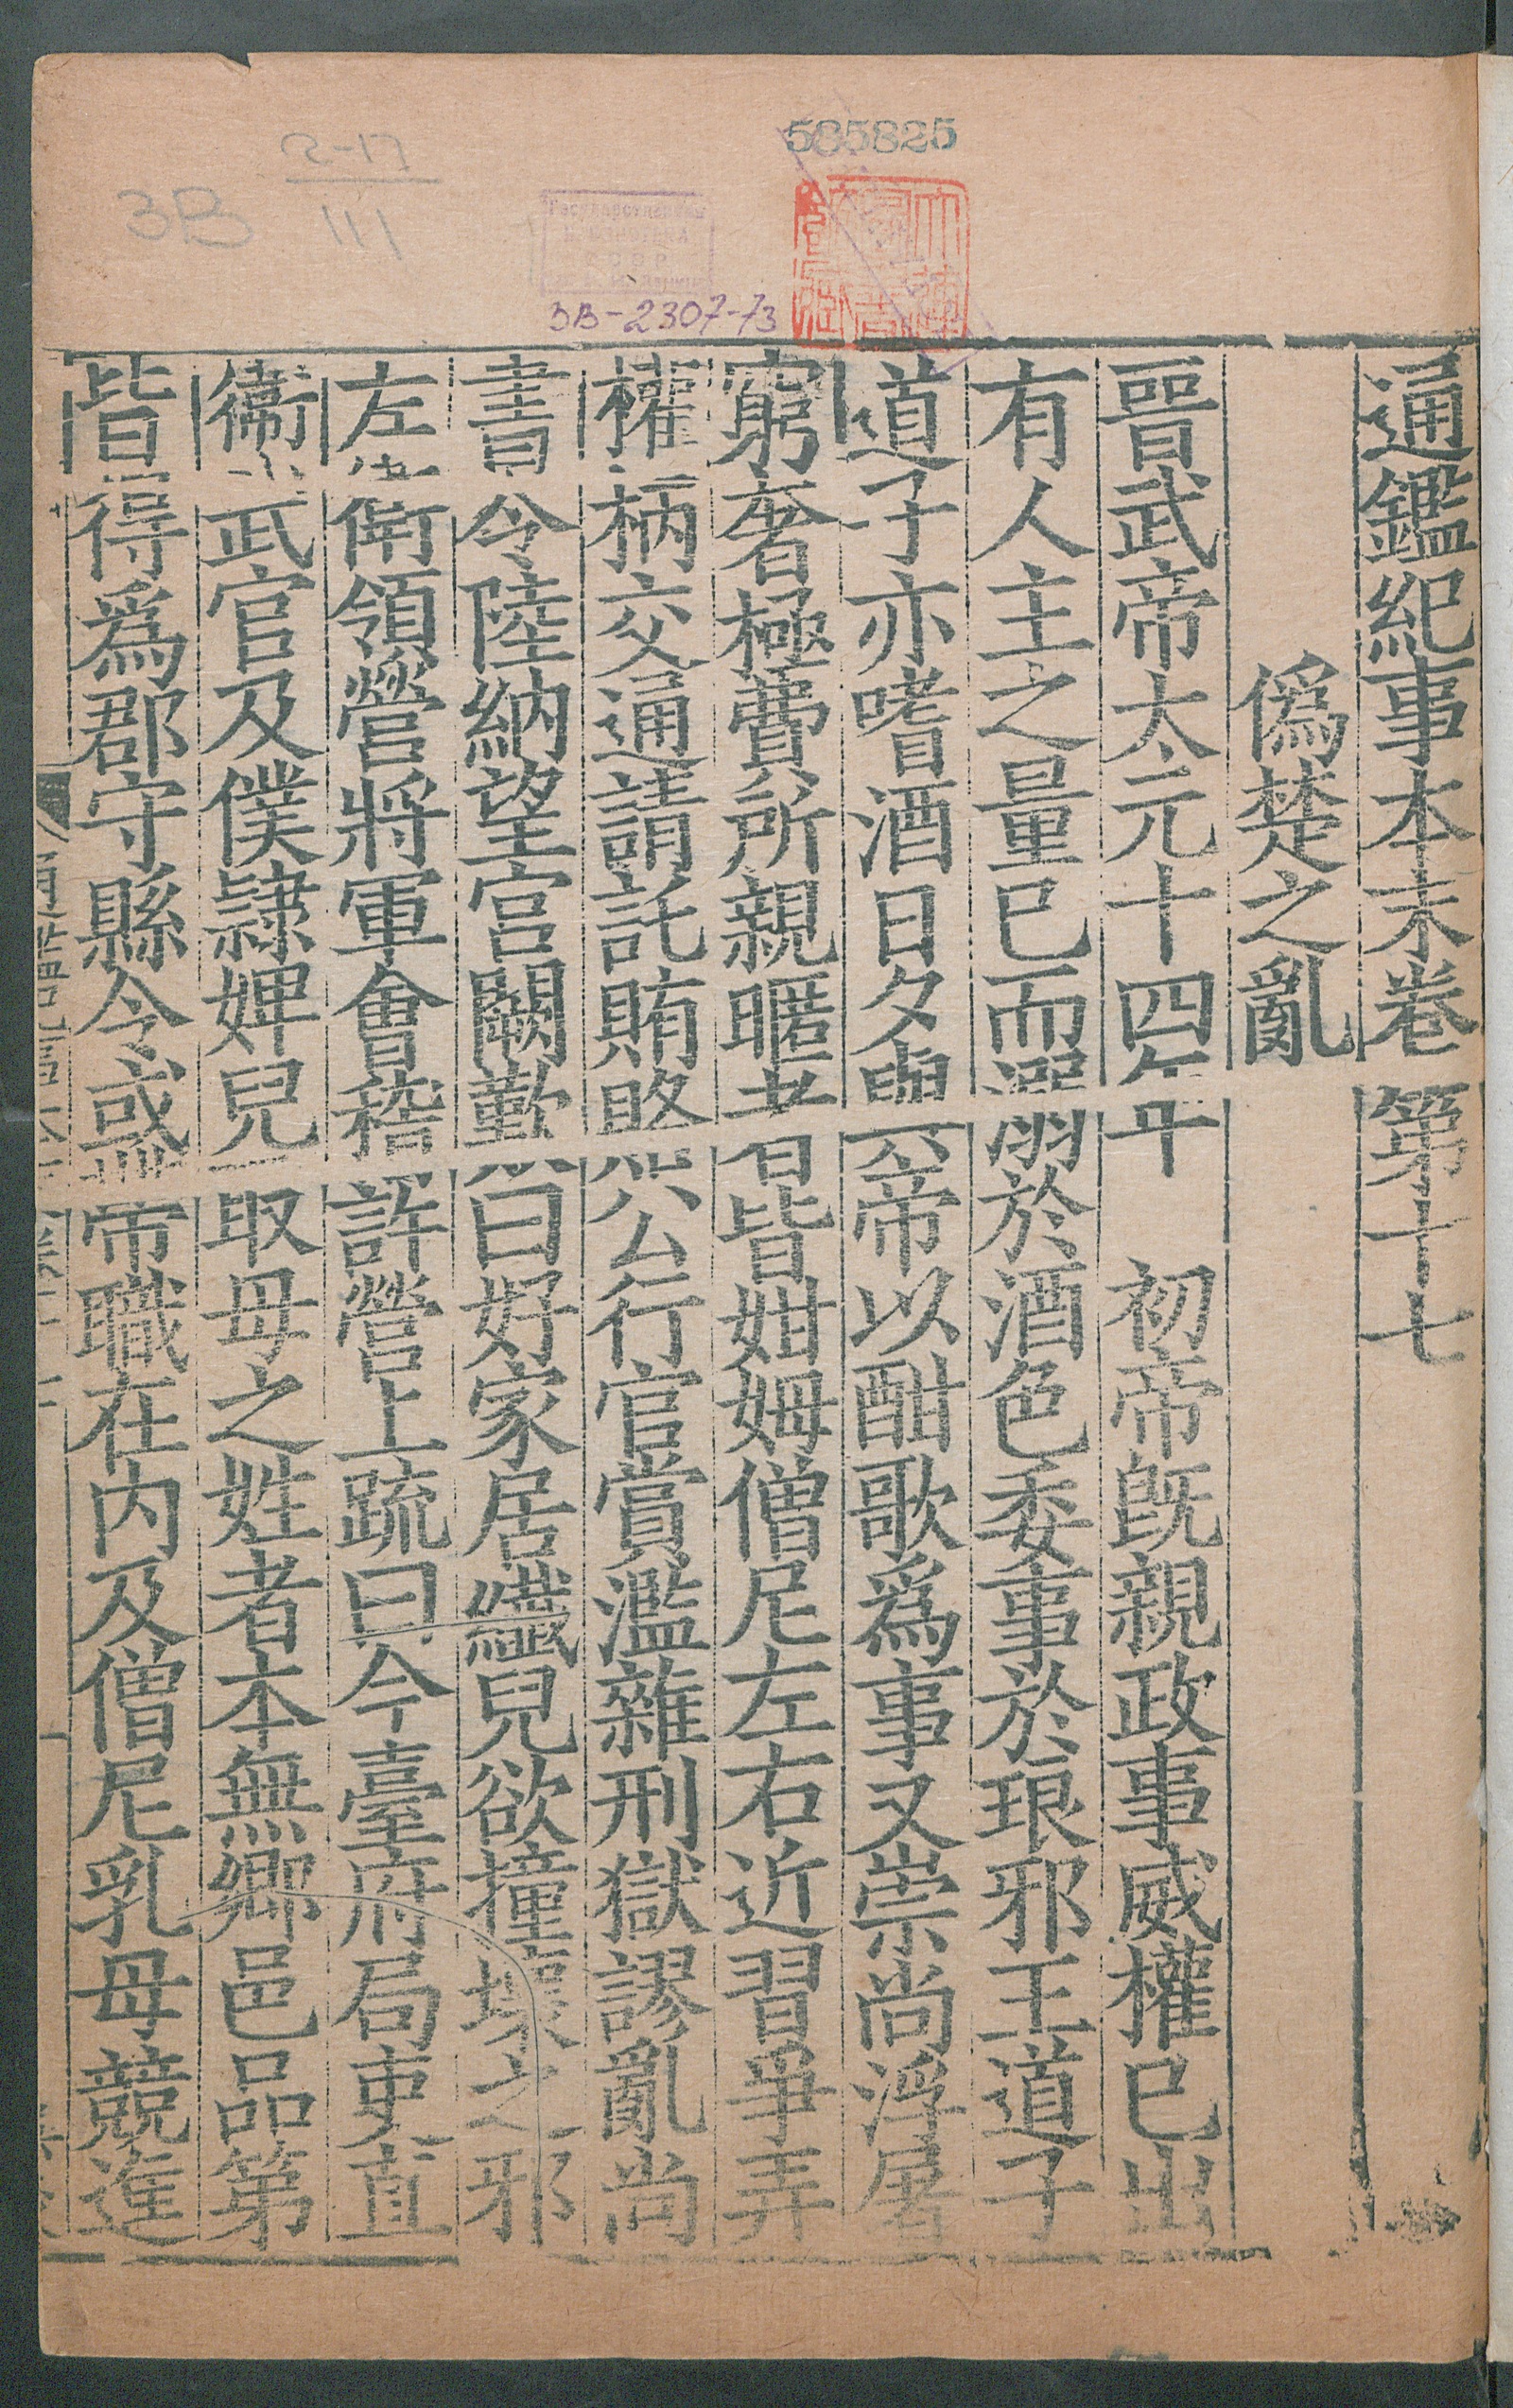 585825
2-17
3B
111
3B-2307-73
通鑑紀事本末卷第十七
僞楚之亂
晉武帝太元十四年 初帝旣親政事威權已出
有人主之量已而溺於酒色委事於琅邪王道子
道子亦嗜酒日夕與帝以酣歌爲事又崇尚浮屠
窮奢極費所親暱者皆姏姆僧尼左右近習爭弄
權柄交通請託賄賂公行官賞濫雜刑獄謬亂尚
書令陸納望宮闕歎曰好家居纖兒欲撞壞之邪
左衛領營將軍會稽許營上疏曰今臺府局吏直
衛武官及僕隷婢兒取母之姓者本無鄉邑品第
皆得爲郡守縣令或帶職在内及僧尼乳母競進